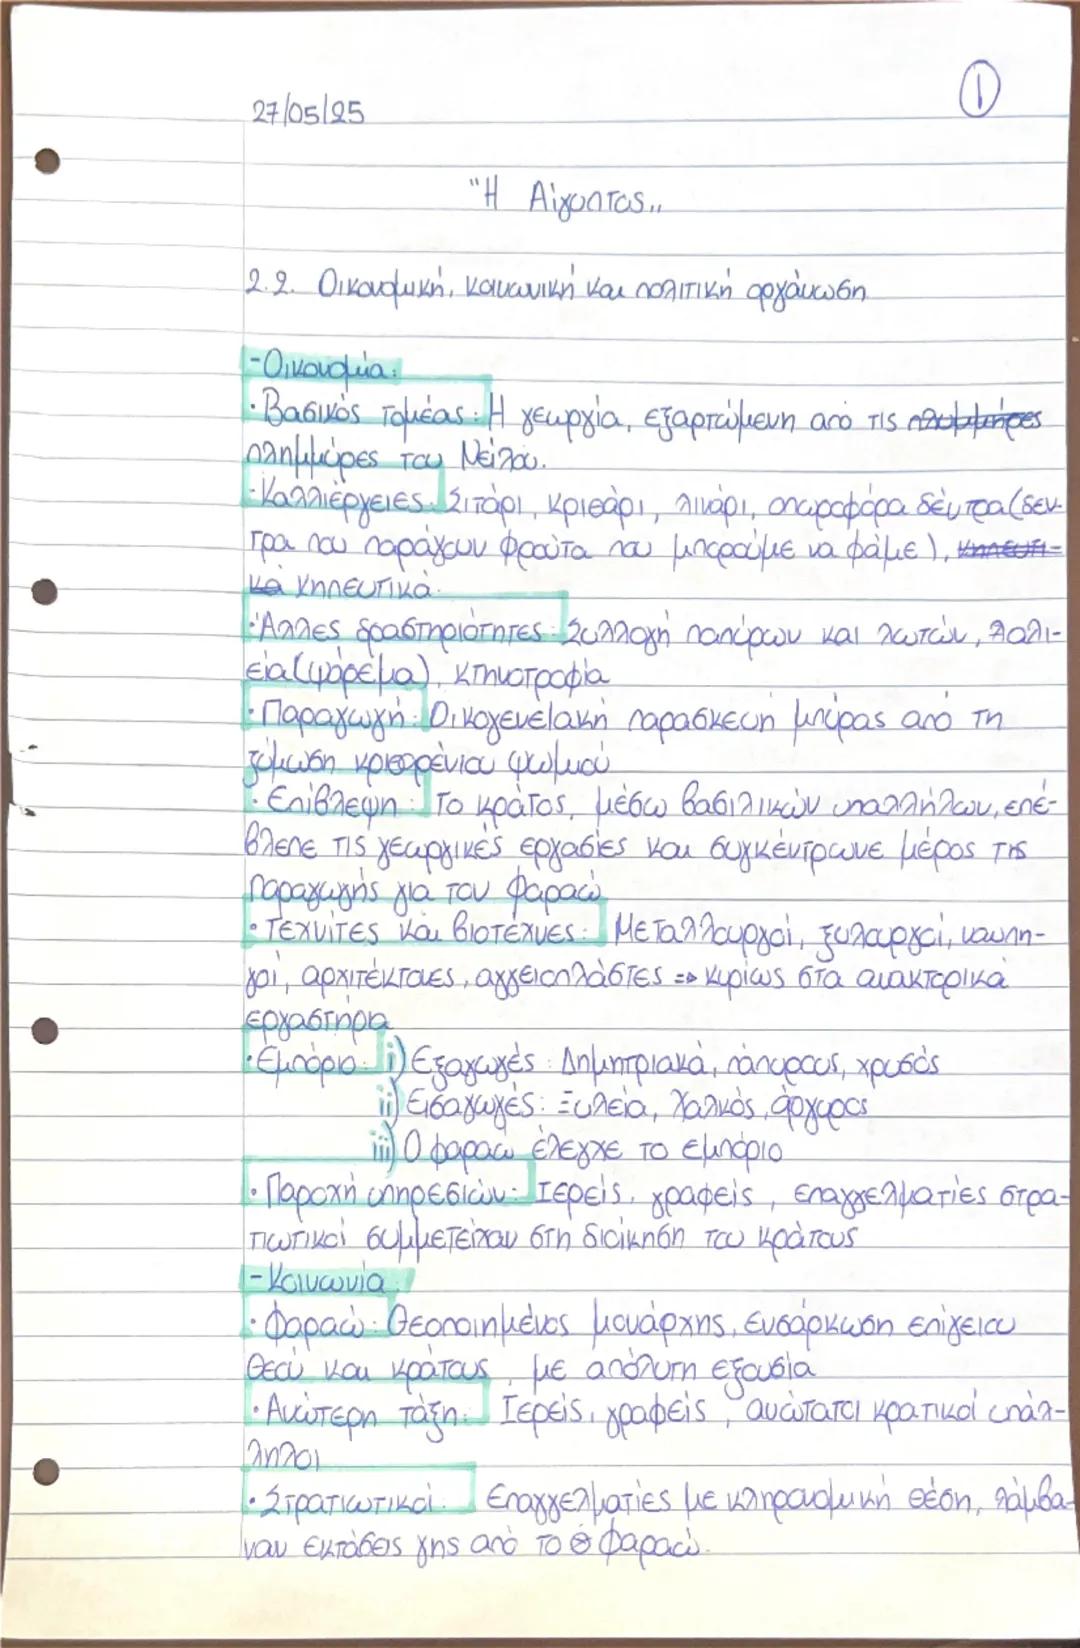 27/05/25
1
"Η Αίγυπτος,,
2.2. Οικονομική, κοινωνική και πολιτική οργάνωση
-Οικονομία:
·Βασικός τομέας: Η γεωργία, εξαρτώμενη από τις πλημμήρες
πλημμύρες του Νείλου.
-Καλλιέργειες: Σιτάρι, κριθάρι, λινάρι, οπωροφόρα δέντρα (δέν-
τρα που παράγουν φρούτα που μπορούμε να φάμε), κηπευτι-
κα κηπευτικά.
·Άλλες δραστηριότητες: Συλλογή παπύρων και λωτών, Αλι-
εία (ψάρεμα), κτηνοτροφία
·Παραγωγή: Οικογενειακή παρασκευή μπύρας από τη
ζύμωση κριθαρένιου ψωμιού
·Επίβλεψη: Το κράτος, μέσω βασιλικών υπαλλήλων, επέ-
βλεπε τις γεωργικές εργασίες και συγκέντρωνε μέρος της
παραγωγής για τον φαραώ
·Τεχνίτες και βιοτέχνες: Μεταλλουργοί, ξυλουργοί, ναυπη-
γοί, αρχιτέκτονες, αγγειοπλάστες => κυρίως στα ανακτορικά
εργαστήρια
·Εμπόριο: i) Εξαγωγές: Δημητριακά, πάπυρους, χρυσός
ii) Εισαγωγές: Ξυλεία, Χαλκός, άργυρος
iii) Ο φαραώ έλεγχε το εμπόριο
·Παροχή υπηρεσιών: Ιερείς, γραφείς, επαγγελματίες στρα-
τιωτικοί συμμετείχαν στη διοίκηση του κράτους
-Κοινωνία:
·Φαραώ: Θεοποιημένος μονάρχης, ενσάρκωση επίγειου
θεού και κράτους, με απόλυτη εξουσία
·Ανώτερη τάξη: Ιερείς, γραφείς, ανώτατοι κρατικοί υπάλ-
ληλοι
·Στρατιωτικοί: Επαγγελματίες με κληρονομική θέση, λάμβα-
ναν εκτάσεις γης από το φαραώ.